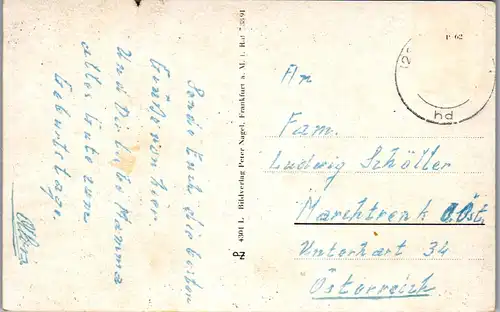 Sende Euch die besten
Grüße von hier.
Und Dir liebe Mamma
alles Gute zum
Geburtstage.
4301 L. Bildverlag Peter Nagel, Frankfurt a. M.
An
Fam.
Ludwig Schöller
Marchtrenk O.Öst.
Unterhart 34
Österreich
hd